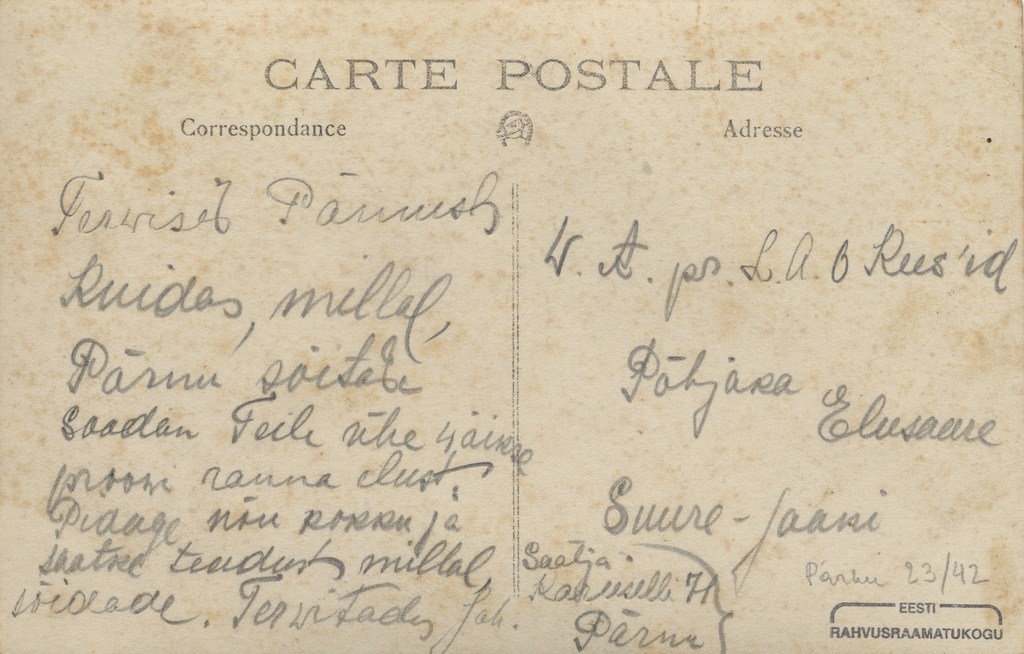 CARTE POSTALE
Correspondance
Adresse
Terwised Pärnust
Kuidas, millal,
Pärnu sõitate
Saadan Teile ühe wäikse
proowi ranna elust.
Pidage nõu kokku ja
saatke teadust millal
sõidade. Terwitades Joh.
W. A. pr. L. A. O Rees'id
Põhjaka
Elusaare
Suure-Jaani
Saatja:
71
Pärnu
Pärnu 23/42
EESTI
RAHVUSRAAMATUKOGU